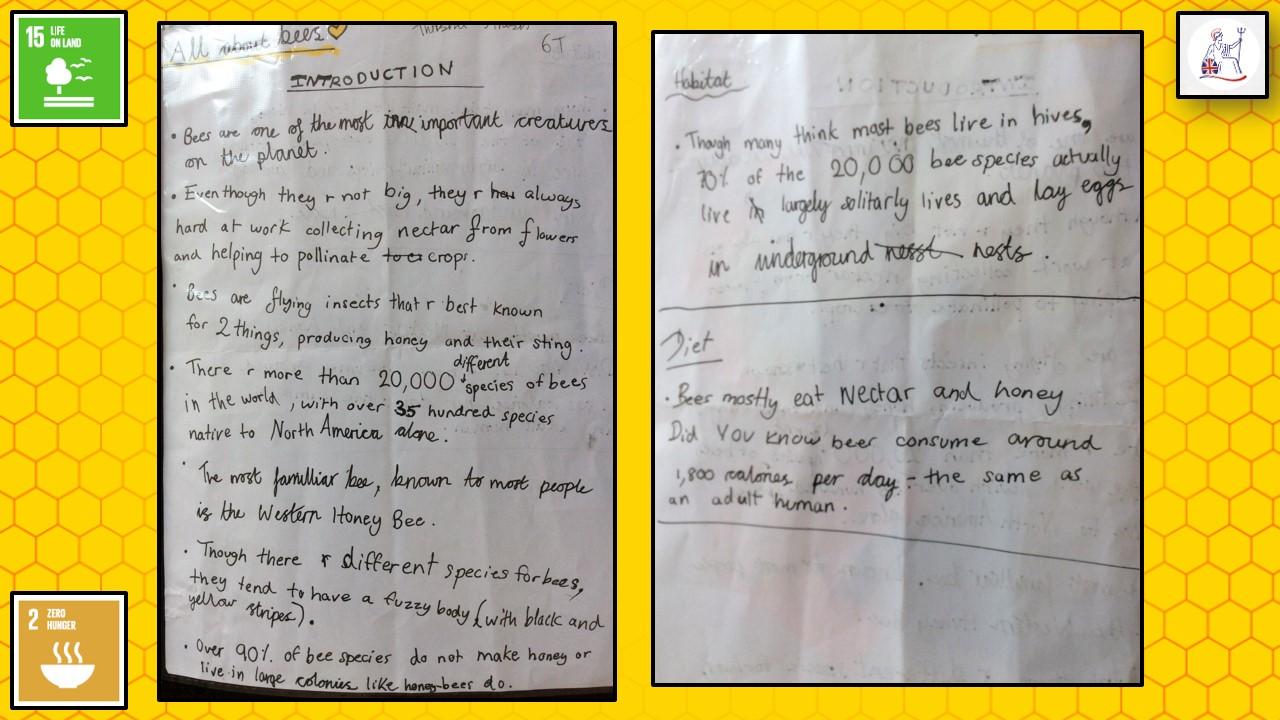 15 LIFE
ON LAND
2 ZERO
HUNGER
All about bees
6T
INTRODUCTION
• Bees are one of the most important creatuvers
on the planet.
• Even though they r not big, they r always
hard at work collecting nectar from flowers
and helping to pollinate crops.
• Bees are flying insects that r best known
for 2 things, producing honey and their sting.
• There r more than 20,000 different species of bees
in the world, with over 35 hundred species
native to North America alone.
• The most familliar bee, known to most people
is the Western Honey Bee.
• Though there r different species for bees,
they tend to have a fuzzy body (with black and
yellow stripes).
• Over 90% of bee species do not make honey or
live in large colonies like honey-bees do.
Habitat
• Though many think most bees live in hives,
70% of the 20,000 bee species actually
live largely solitarly lives and lay eggs
in underground nests.
Diet
• Bees mostly eat Nectar and honey
Did YOU know beer consume around
1,800 calories per day - the same as
an adult human.